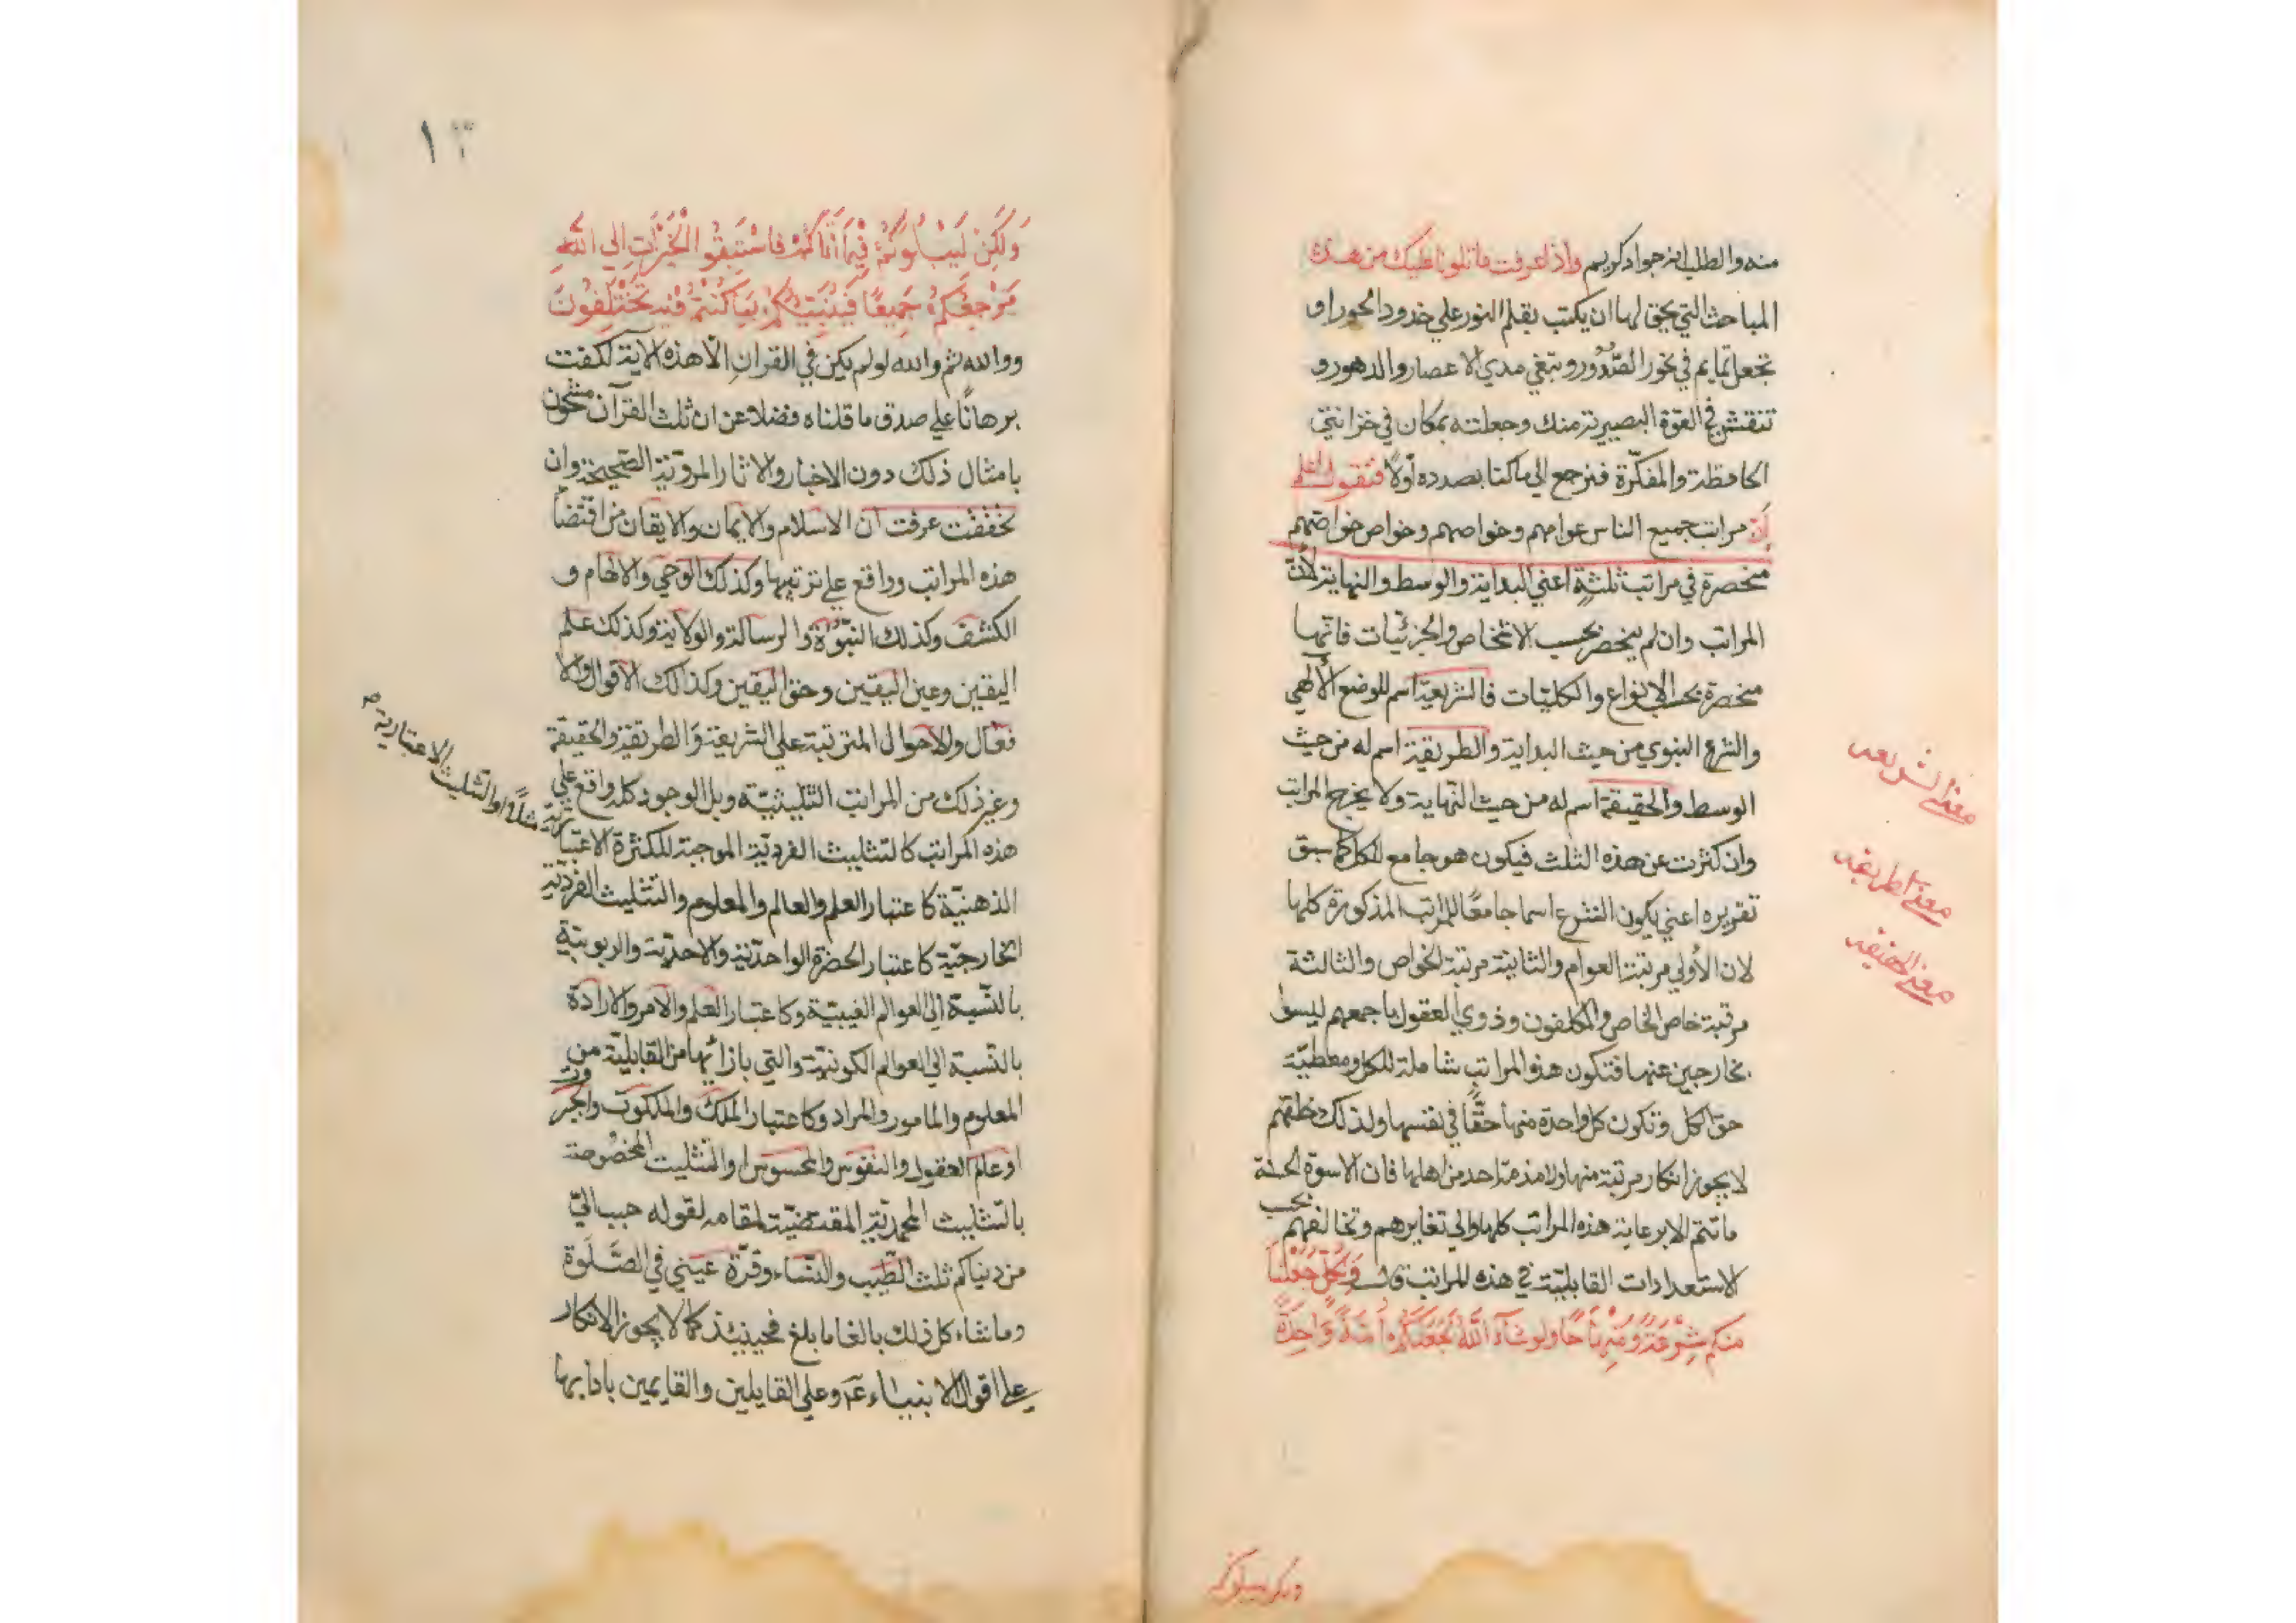 منه والطلب من جواد كريم واذا عرفت ما تلونا عليك من هذه
المباحث التي يحق لها ان يكتب بقلم النور علي خدود الحور او
تجعل تمايم في نحور الصدور وتبقي مدي الاعصار والدهور و
تنقش في القوة البصيرية منك وجعلته بمكان في خزانتي
الحافظة والمفكّرة فنرجع الي ما كنا بصدده أولاً فنقول اعلم
أنّ مراتب جميع الناس عوامهم وخواصهم وخواص خواصهم
منحصرة في مراتب ثلثة اعني البداية والوسط والنهاية لأنّ
المراتب وان لم ينحصر بحسب الاشخاص والجزئيات فانّها
منحصرة بحسب الانواع والكليات فالشريعة اسم للوضع الألهي
والشرع النبوي من حيث البداية والطريقة اسم له من حيث
الوسط والحقيقة اسم له من حيث النهاية ولا يخرج المراتب
وان كثرت عن هذه الثلث فيكون هو جامع للكل كما سبق
تقريره اعني يكون الشرع اسما جامعًا للمراتب المذكورة كلها
لان الأولي مرتبة العوام والثانية مرتبة الخواص والثالثة
مرتبة خاص الخاص والمكلفون وذوي العقول باجمعهم ليسوا
بخارجين عنها فتكون هذه المراتب شاملة للكل ومعطيّة
حق الكل وتكون كل واحدة منها حقًّا في نفسها ولذلك
لا يجوز انكار مرتبة منها ولا مذمّة احد من اهلها فان الاسوة الحسنة
ما تتم الا برعاية هذه المراتب كلها والي تغايرهم وتخالفهم بحسب
الاستعدادات القابليّة في هذه المراتب وَلِكُلٍّ جَعَلْنَا
منكم شِرْعَةً وَمِنْهَاجًا ولو شآءَ اللّٰهُ لَجَعَلَكُمْ أُمَّةً وَاحِدَةً
معني الشريعه
معني الطريقه
معني الحقيقه
وَلَكِنْ لِيَبْلُوَكُمْ فِيمَا آتَاكُمْ فَاسْتَبِقُوا الْخَيْرَاتِ اِلي اللّٰهِ
مَرْجِعُكُمْ جَمِيعًا فَيُنَبِّئُكُمْ بِمَا كُنْتُمْ فِيهِ تَخْتَلِفُونَ
ووالله ثم والله لو لم يكن في القرانِ الّا هذه الآية لكفت
برهانًا علي صدق ما قلناه فضلا عن ان ثلث القرآن مشحون
بامثال ذلك دون الاخبار والاثار المرويّة الصّحيحة وان
تحققت عرفت ان الاسلام والايمان والايقان من اقتضاء
هذه المراتب وواقع علي ترتيبها وكذلك الوحي والالهام و
الكشف وكذلك النبوّة والرسالة والولاية وكذلك علم
اليقين وعين اليقين وحق اليقين وكذالك الاقوال والا
فعال والاحوال المترتبة علي الشريعة والطريقة والحقيقة
وغير ذلك من المراتب التثليثيّة وبل الوجود كله واقع علي
هذه المراتب كالتثليث الفرديّة الموجبة للكثرة الاعتبا
الذهنيّة كاعتبار العلم والعالم والمعلوم والتثليث الفرديّة
الخارجيّة كاعتبار الحضرة الواحديّة والاحديّة والربوبيّة
بالنسبة الي العوالم الغيبيّة وكاعتبار العلم والامر والارادة
بالنّسبة الي العوالم الكونيّة والتي بازائها من القابليّة من
المعلوم والمامور والمراد وكاعتبار الملك والملكوت والجبروت
او عالم العقول والنفوس والمحسوس او التثليث المخصوصة
بالتثليث المحمديّة المقتضيّة لمقامه لقوله حبب اليّ
من دنياكم ثلث الطّيب والنّساء وقرّة عيني في الصَّلَوة
وما شاء كل ذلك بالغا ما بلغ فحينئذ كما لا يجوز الانكار
علي اقوال الانبياء عم وعلي القايلين والقايمين بادابها
مثلاً او التثليث الاعتبارية